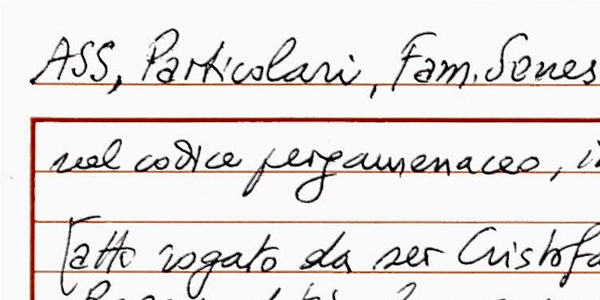 ASS, Particolari, Fam. Senes
nel codice pergamenaceo, in
[atto rogato da ser Cristofa